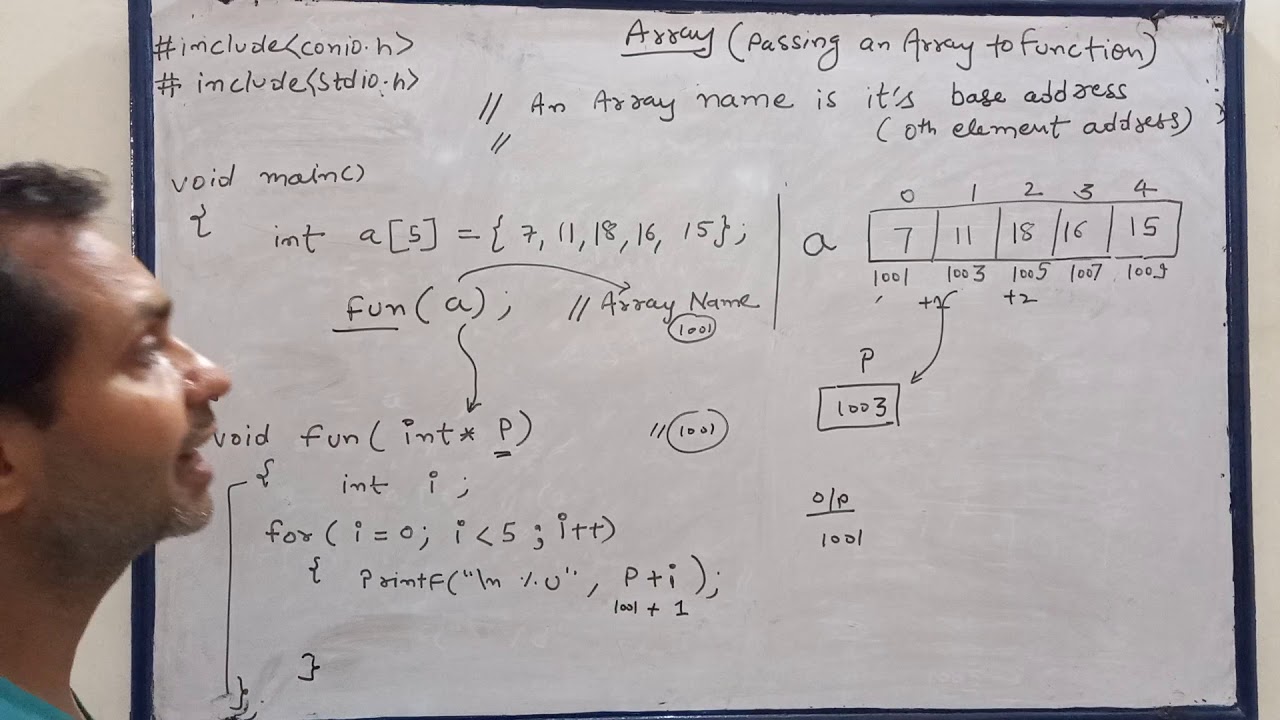 #include<conio.h>
# include<stdio.h>
Array (Passing an Array to Function)
// An Array name is it's base address
(0th element address)
//
void main()
{ int a[5] = { 7, 11, 18, 16, 15};
fun(a); // Array Name
1001
0 1 2 3 4
a 7 11 18 16 15
1001 1003 1005 1007 1009
+2
P
1003
void fun( int* P) // 1001
{ int i ;
for( i = 0; i < 5 ; i++)
{ PrintF("\n %u", P+i );
1001 + 1
}
};
O/P
1001